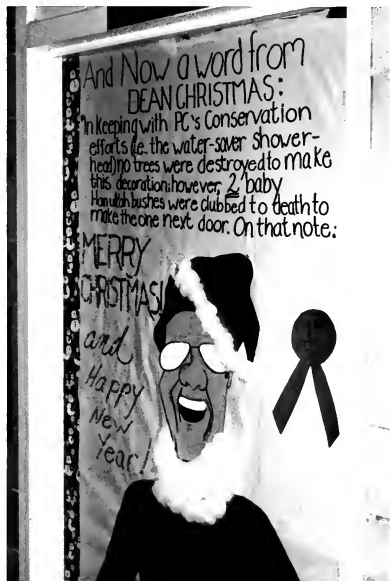 And Now a word from
DEAN CHRISTMAS:
In keeping with PC's Conservation
efforts (i.e. the water-saver shower-
head) no trees were destroyed to make
this decoration; however, 2 baby
bushes were clubbed to death to
make the one next door. On that note:
MERRY
CHRISTMAS!
and
Happy
New
Year!